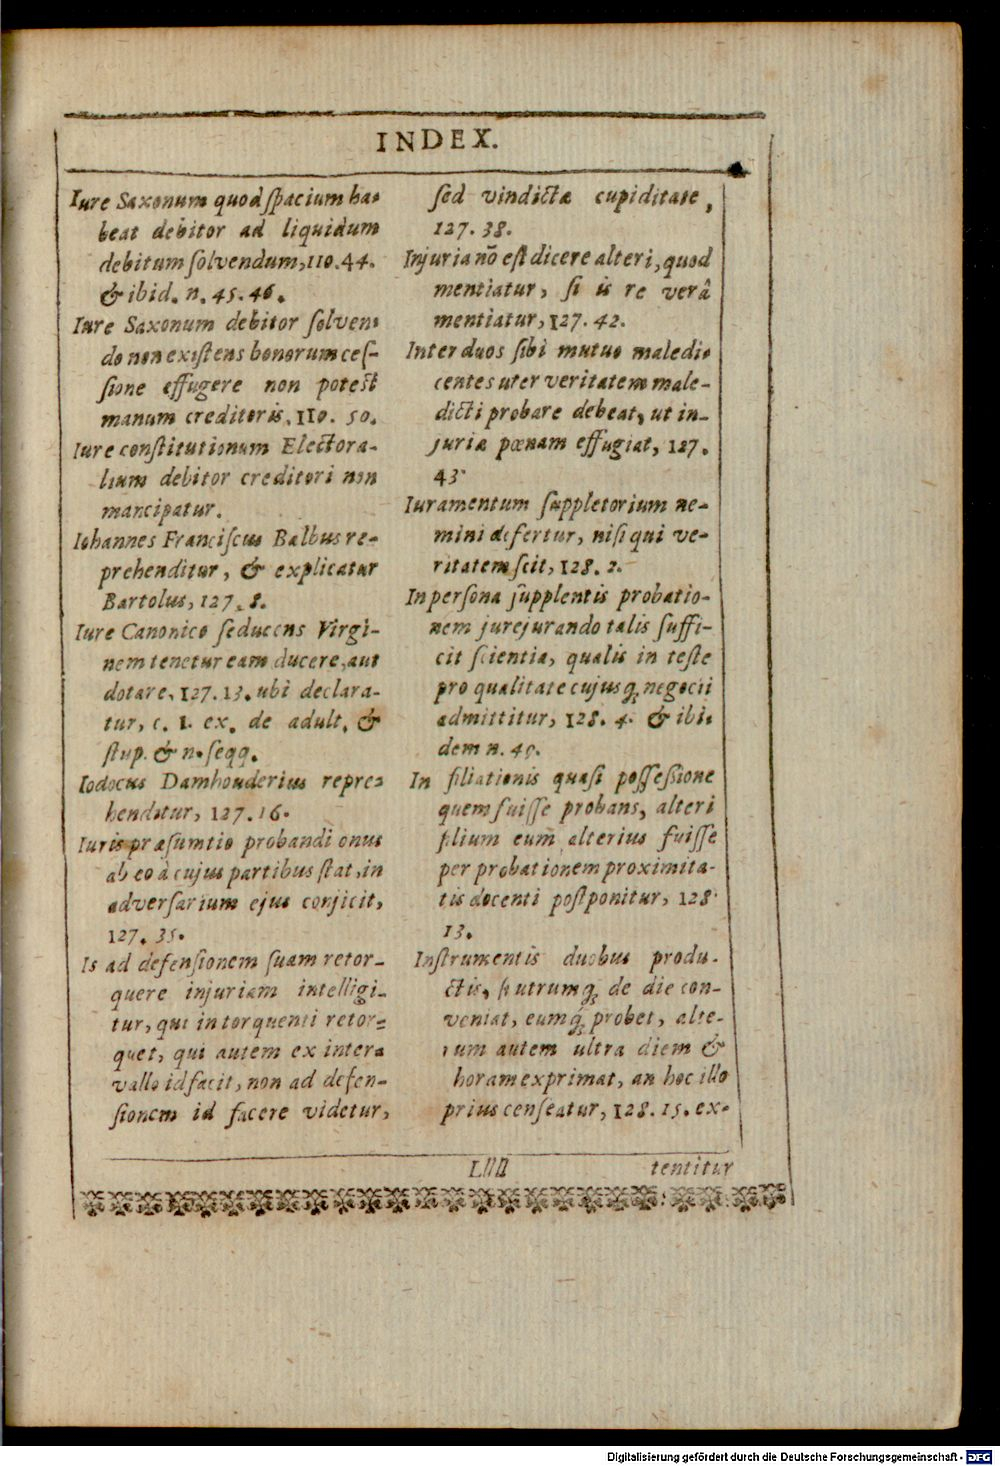 INDEX.
Iure Saxonum quod ſpacium ha-
beat debitor ad liquidum
debitum ſolvendum, 110. 44.
& ibid. n. 45. 46.
Iure Saxonum debitor ſolven-
do non exiſtens bonorum ceſ-
ſione effugere non poteſt
manum creditoris, 110. 50.
Iure conſtitutionum Electora-
lium debitor creditori non
mancipatur.
Iohannes Franciſcus Balbus re-
prehenditur, & explicatur
Bartolus, 127. 8.
Iure Canonico ſeducens Virgi-
nem tenetur eam ducere, aut
dotare, 127. 13. ubi declara-
tur, c. 1. ex. de adult. &
ſtup. & n. ſeqq.
Iodocus Damhouderius repre-
henditur, 127. 16.
Iuris præſumtio probandi onus
ab eo à cujus partibus ſtat, in
adverſarium ejus conjicit,
127. 35.
Is ad defenſionem ſuam retor-
quere injuriam intelligi-
tur, qui in torquenti retor-
quet, qui autem ex inter-
vallo id facit, non ad defen-
ſionem id facere videtur,
ſed vindictæ cupiditate,
127. 38.
Injuria nõ eſt dicere alteri, quod
mentiatur, ſi is re verâ
mentiatur, 127. 42.
Inter duos ſibi mutuo maledi-
centes uter veritatem male-
dicti probare debeat, ut in-
juriæ pœnam effugiat, 127.
43.
Iuramentum ſuppletorium ne-
mini defertur, niſi qui ve-
ritatem ſcit, 128. 2.
In perſona ſupplentis probatio-
nem jurejurando talis ſuffi-
cit ſcientia, qualis in teſte
pro qualitate cujusq; negocii
admittitur, 128. 4. & ibi-
dem n.
In filiationis quaſi poſſeſſione
quem fuiſſe probans, alteri
filium eum alterius fuiſſe
per probationem proximita-
tis docenti poſtponitur, 128.
13.
Inſtrumentis duobus produ-
ctis, ſi utrumq; de die con-
veniat, eumq; probet, alte-
rum autem ultra diem &
horam exprimat, an hoc illo
prius cenſeatur, 128. 15. ex-
Lllll
tentitur
Digitalisierung gefördert durch die Deutsche Forschungsgemeinschaft - DFG